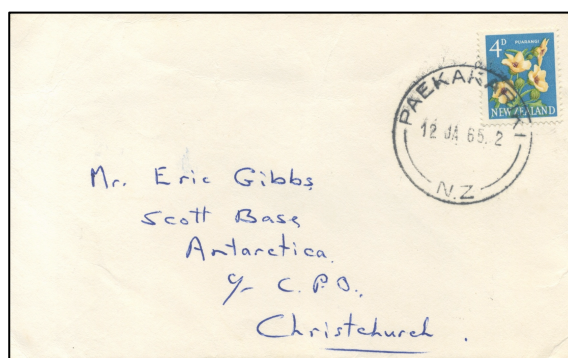 4D
PUARANGI
NEW ZEALAND
PAEKAKARIKI
12 JA 65. 2
N.Z
Mr. Eric Gibbs,
Scott Base,
Antarctica.
c/- C.P.O.,
Christchurch.